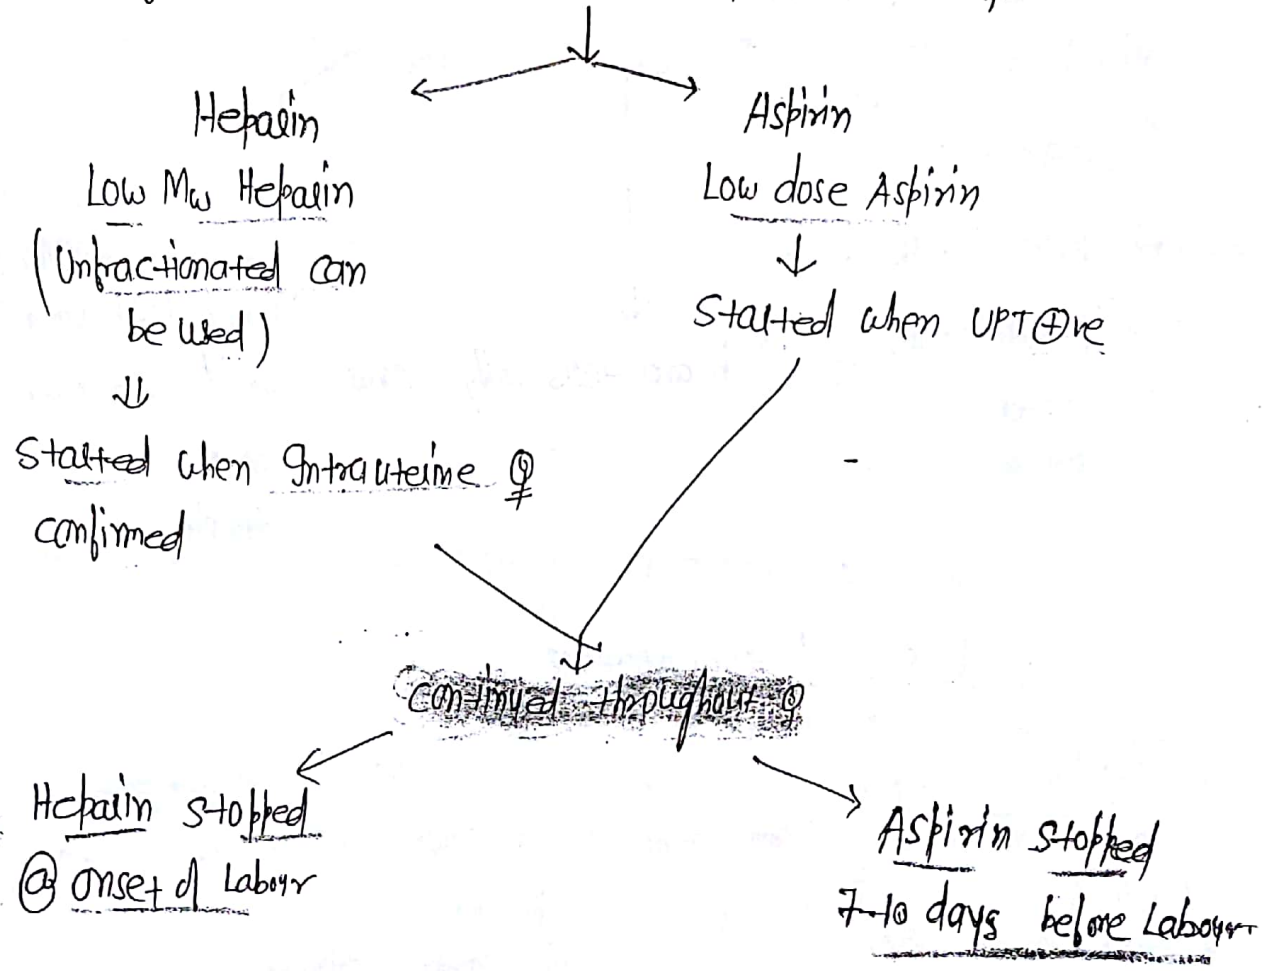 Heparin
Low Mw Heparin
(Unfractionated can
be used)
Started when Intrauterine ♀
confirmed
Aspirin
Low dose Aspirin
Started when UPT⊕ve
continued throughout ♀
Heparin stopped
@ onset of Labour
Aspirin stopped
7-10 days before Labour